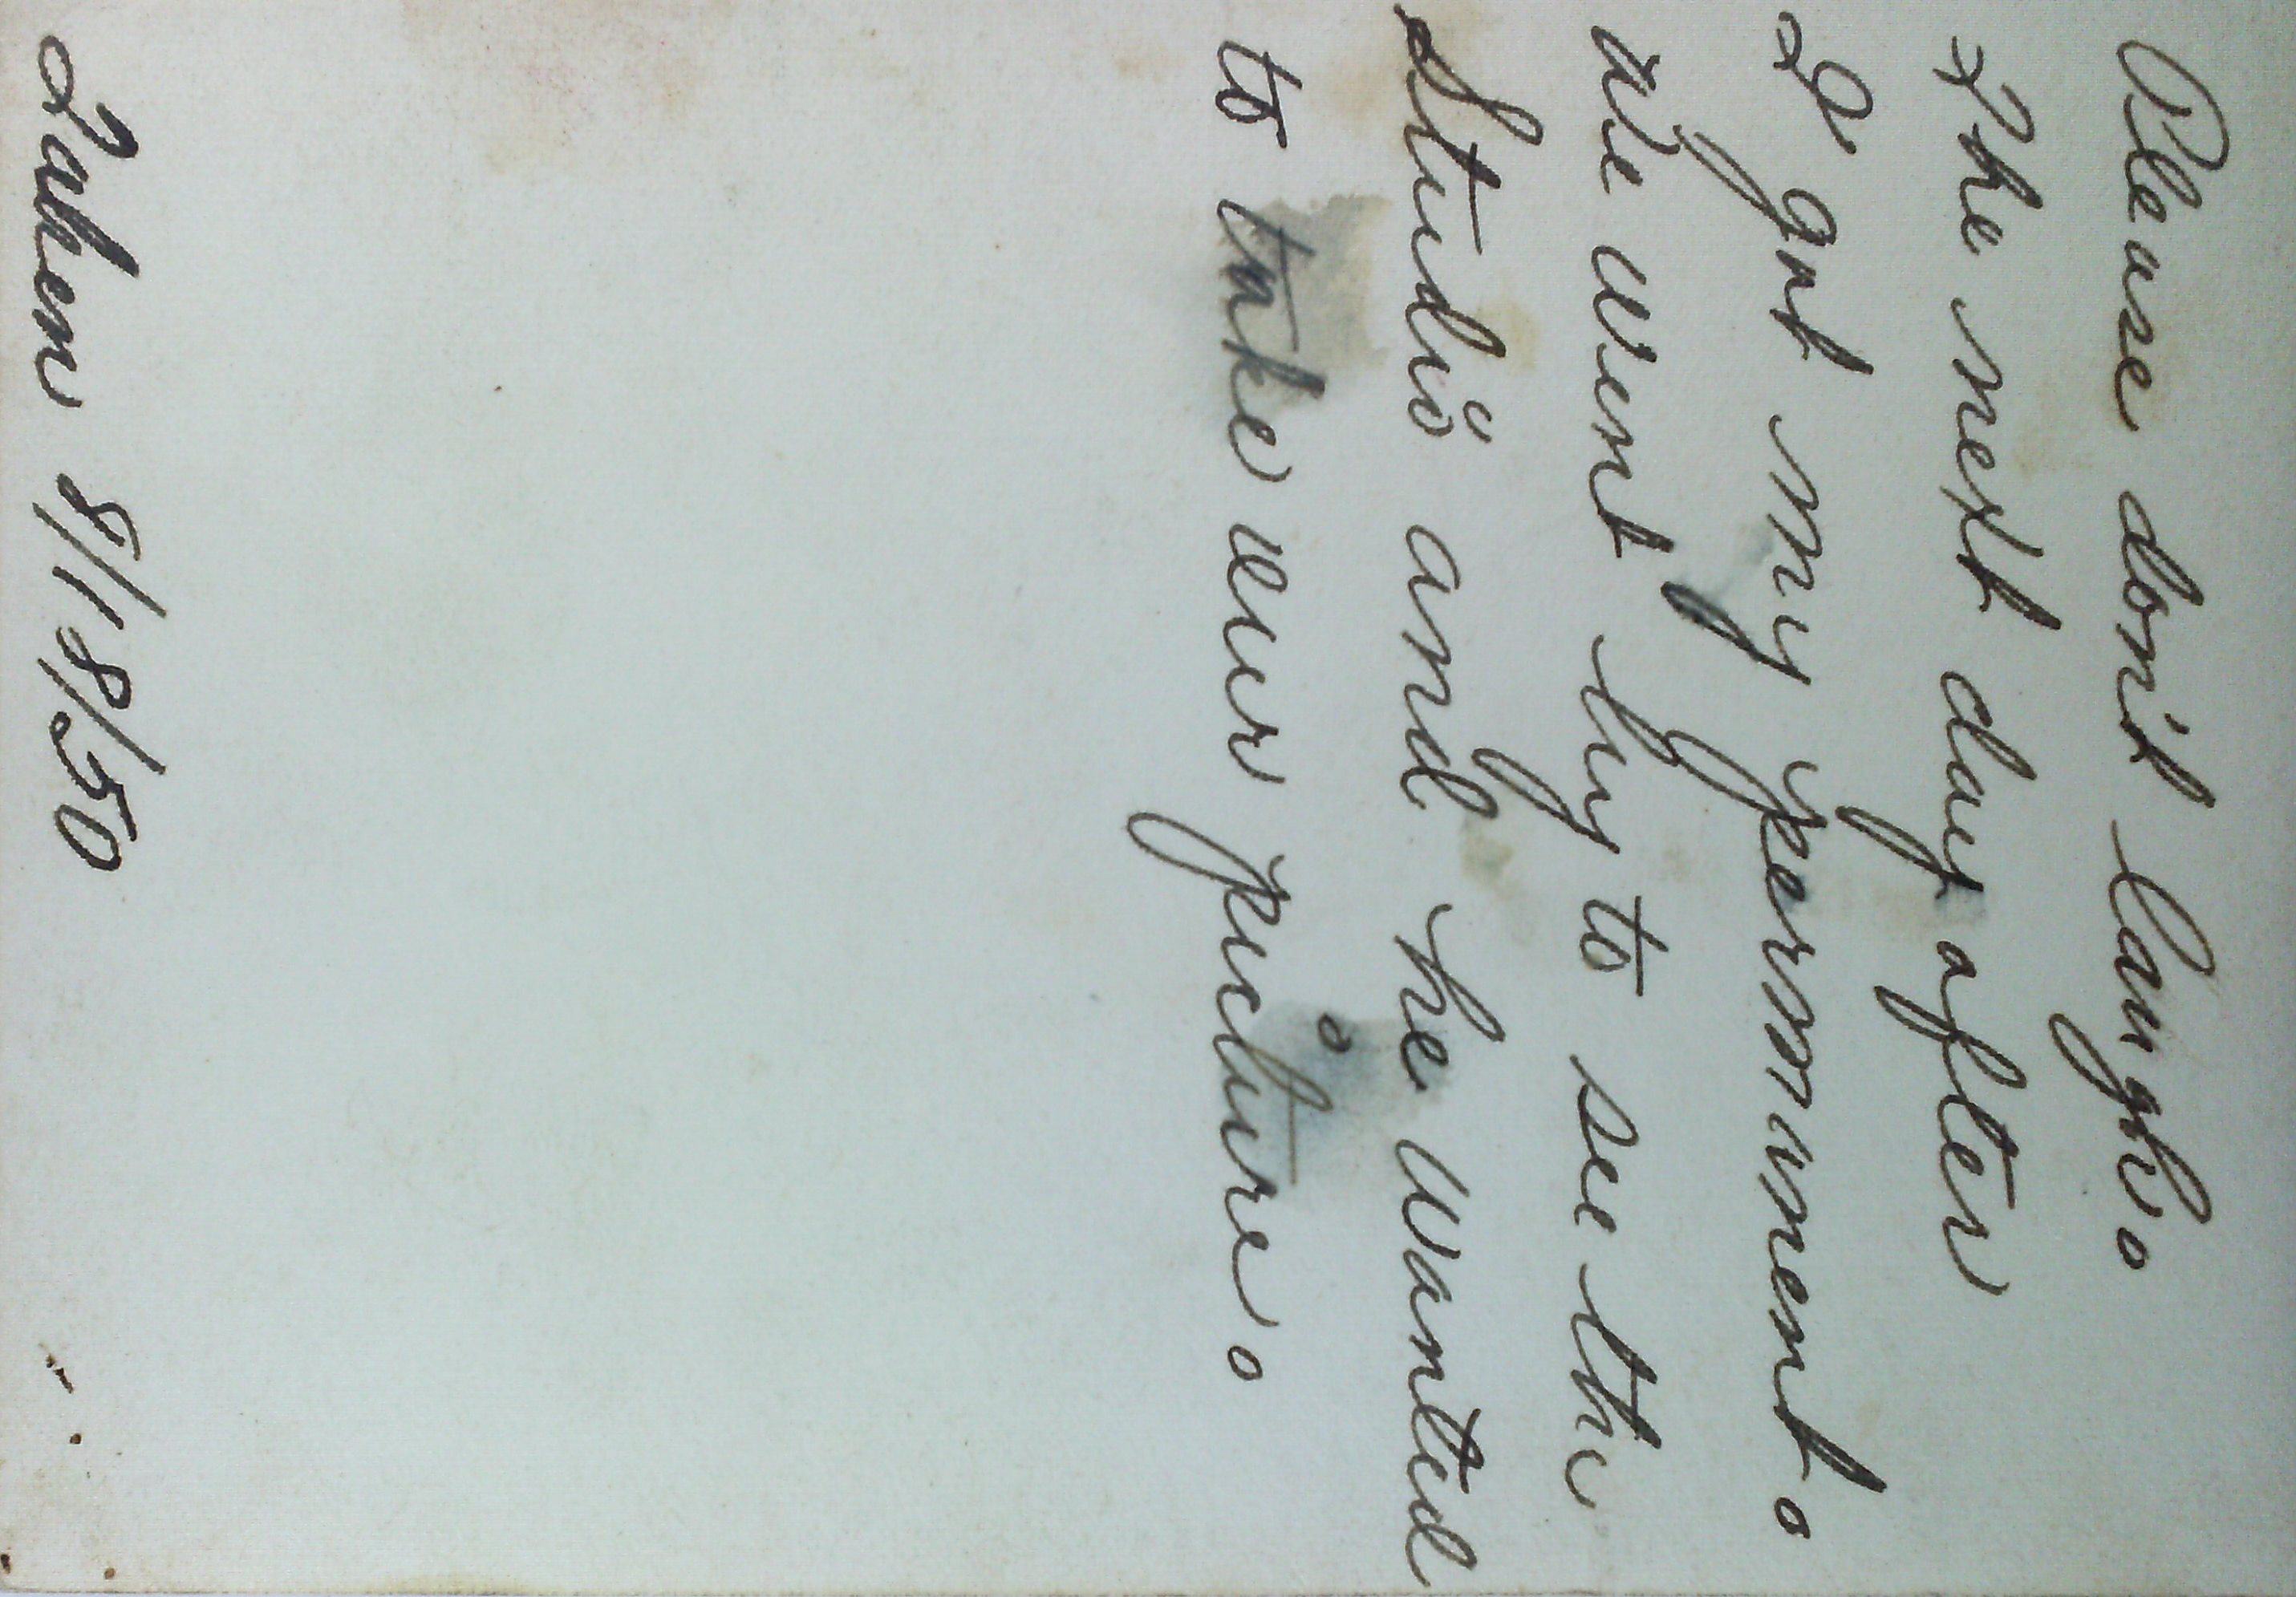 Please don't laugh.
The next day after
I got my permunent.
we went by to see the
Studio and he wanted
to take our picture.
Taken 8/18/50